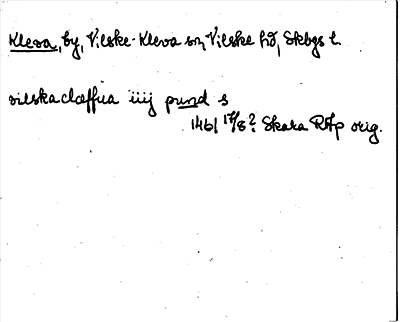 Kleva, by, Vilske-Kleva sn, Vilske hd, Skbgs l.
vilskaclæffua iiij pund s
1461 17/8? Skara RAp orig.